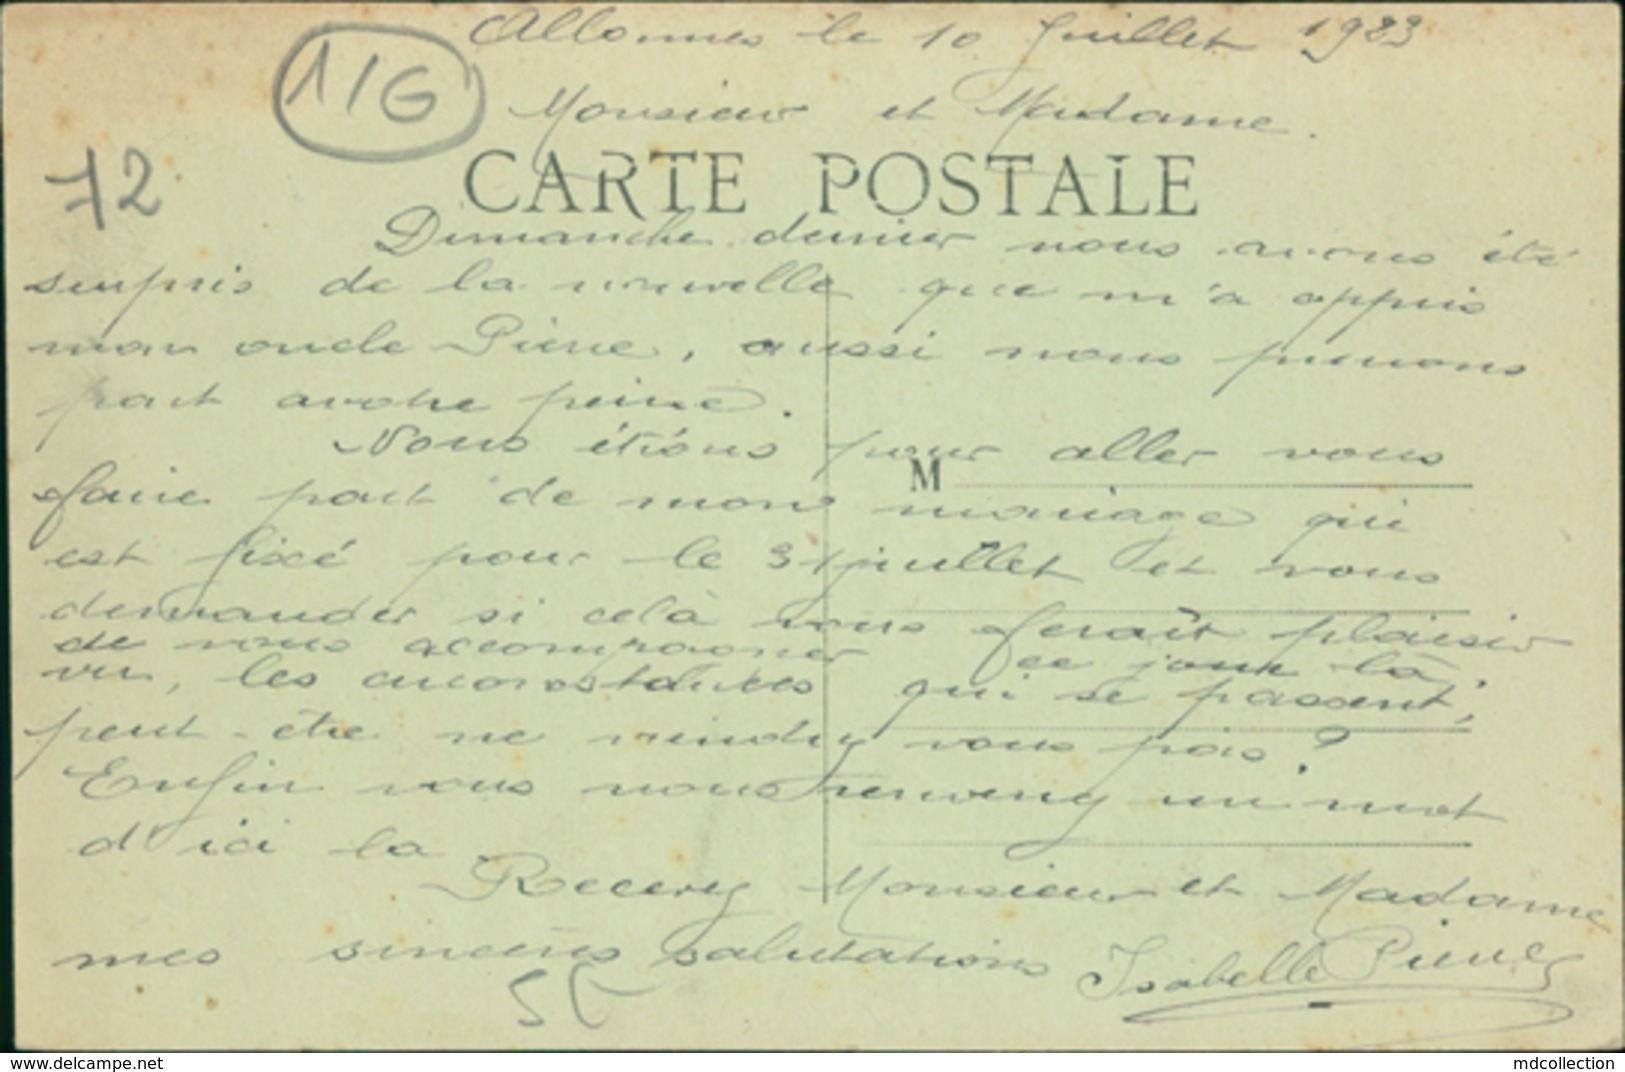 Allonnes le 10 Juillet 1923
1/G
Monsieur et Madame.
72
CARTE POSTALE
Dimanche dernier nous avons été
surpris de la nouvelle que m'a appris
mon oncle Pierre, aussi nous prenons
part avotre peine.
Nous étions pour aller vous
M
faire part de mon mariage qui
est fixé pour le 31 juillet et vous
demander si celà vous ferait plaisir
de vous accompagner ce jour là
vu, les circonstances qui se passent,
peut-être ne viendrez vous pas?
Enfin vous nous enverrez un mot
d'ici la
Recevez Monsieur et Madame
mes sincères salutations Isabelle
mdcollection